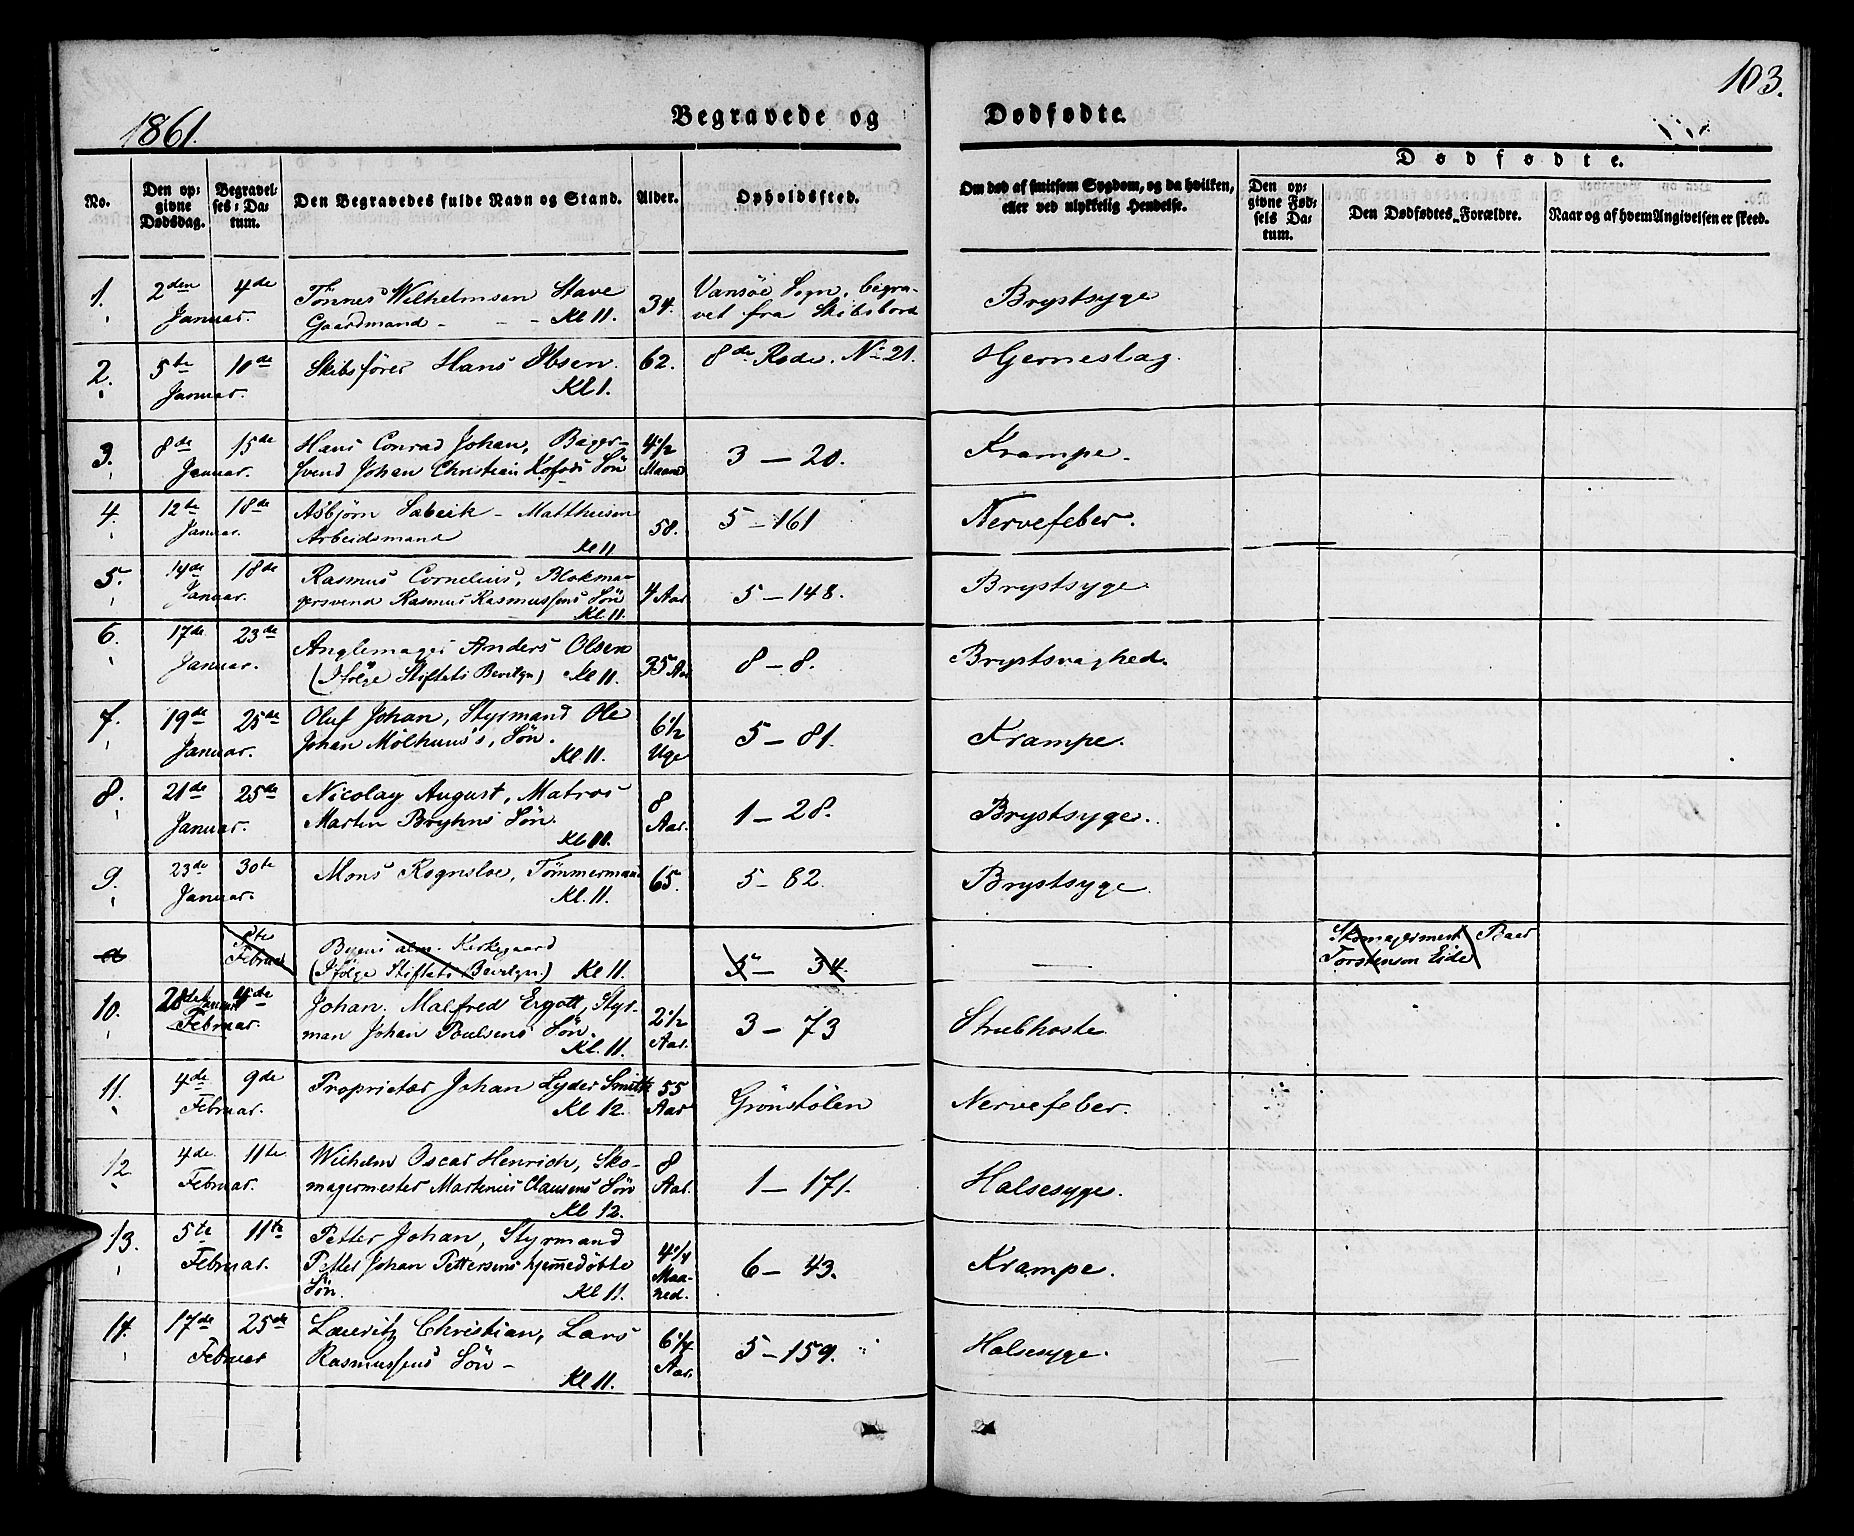 103.
1861.
Begravede og Dødfødte.
Dødfødte.
No.
Den op-
givne
Dødsdag.
Begravel-
ses-Da-
tum.
Den Begravedes fulde Navn og Stand.
Alder.
Opholdssted.
Om død af smitsom Sygdom, og da hvilken,
eller ved ulykkelig Hendelse.
Den op-
givne Fød-
sels Da-
tum.
Den Dødfødtes Forældre.
Naar og af hvem Angivelsen er skeed.
1. 2den 4de Januar. Tønnes Wilhelmsen Stave
Gaardmand - - - Kl 11. 34.
Vansøe Sogn, begra-
vet fra Skibsbord
Brystsyge
2. 5te 10de Januar. Skibsfører Hans Ibsen.
Kl 1. 62. 8de Rode. No 21. Hjerneslag.
3. 8de 15de Januar. Hans Conrad Johan, Bager-
svend Johan Christian Kofods Søn
4 1/2
Maaned
3 - 20. Krampe.
4. 12te 18de Januar. Asbjørn - Matthiesen
Arbeidsmand Kl 11 58. 5 - 161 Nervefeber.
5. 14de 18de Januar. Rasmus Cornelius, Blokma-
gersvend Rasmus Rasmussens Søn
Kl. 11. 4 Aar 5 - 148. Brystsyge
6. 17de 23de Januar. Anglemager Anders Olsen
(Ifølge Stiftets Bevilgn) Kl 11. 35 Aar 8 - 8. Brystsvaghed.
7. 19de 25de Januar. Oluf Johan, Styrmand Ole
Johan Søn.
Kl. 11.
6 1/2
Uge
5 - 81. Krampe.
8. 21de 25de Januar. Nicolay August, Matros
Martin Bryhns Søn.
Kl 11.
8
Aar.
1 - 28. Brystsyge.
9. 23de 30te Januar. Mons Rognsloe, Tømmermand
Kl. 11. 65. 5 - 82. Brystsyge.
a Februar Byens alm. Kirkegaard
(Ifølge Stiftets Bevilgn.) Kl 11. 5 - 34. Skomagermest Baar
Torstenson Eide
10. 28de Januar 4de Februar. Johan Malfred Ergott, Styr-
man Johan Poulsens Søn.
Kl. 11.
2 1/2
Aar.
3 - 73 Strubhoste
11. 4de 9de Februar. Proprietær Johan Lyder Smith
Kl 12.
55
Aar
Grønstølen Nervefeber.
12 4de 11te Februar. Wilhelm Oscar Henrich, Sko-
magermester Martinius Clausens Søn
Kl 12.
8
Aar.
1 - 171. Halsesyge.
13. 5te 11te Februar. Petter Johan, Styrmand
Petter Johan Pettersens hjemmedøbte
Søn. Kl 11.
4 1/4
Maa-
ned.
6 - 43. Krampe.
14. 17de 25de Februar Lauritz Christian, Lars
Rasmussens Søn -
Kl 11.
6 1/4
Aar.
5 - 159. Halsesyge.